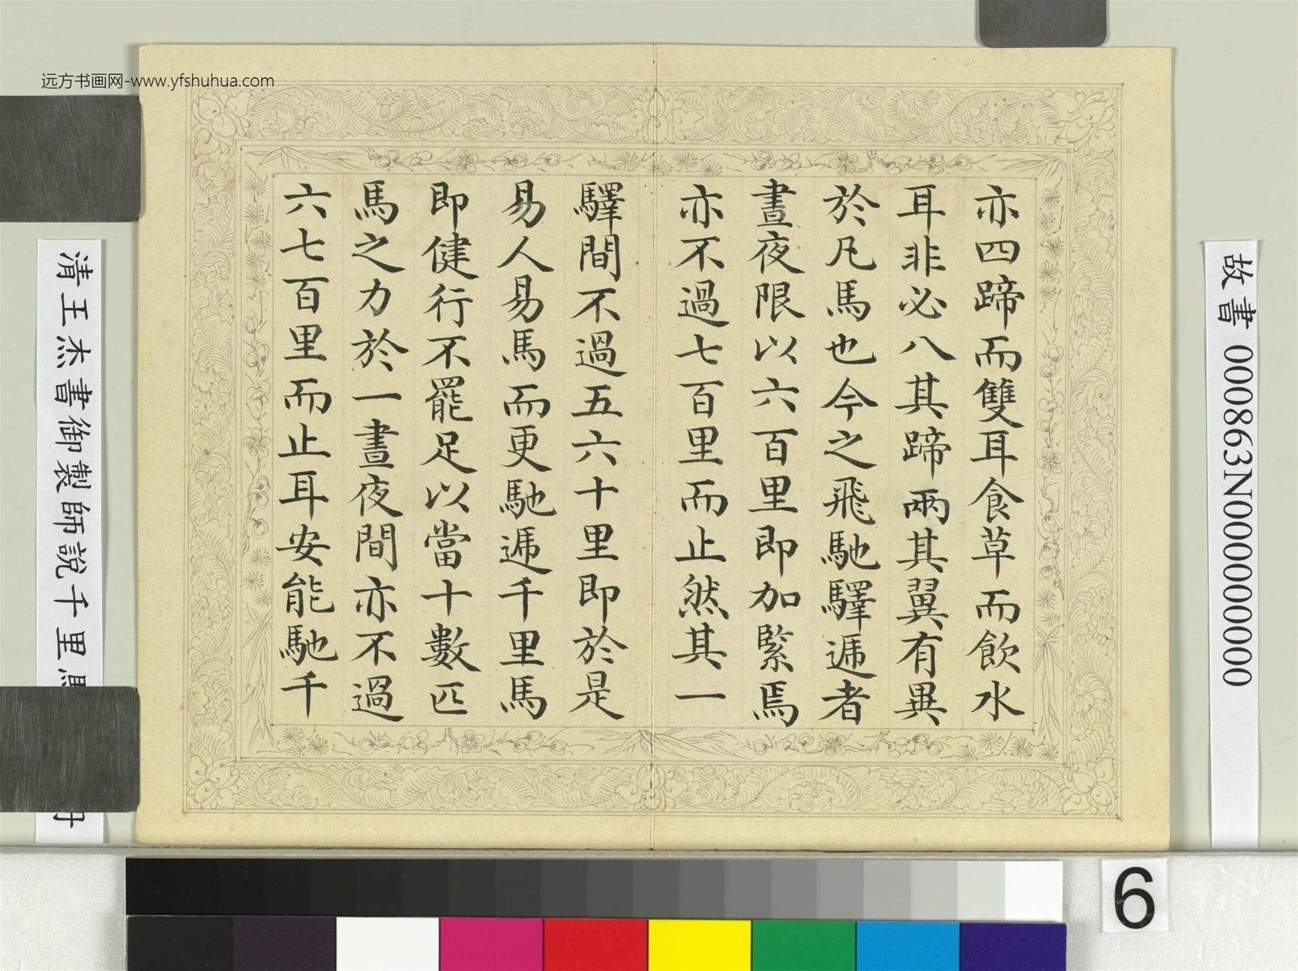 远方书画网-www.yfshuhua.com
故書000863N000000000
亦四蹄而雙耳食草而飲水
耳非必八其蹄兩其翼有異
於凡馬也今之飛馳驛遞者
晝夜限以六百里即加緊焉
亦不過七百里而止然其一
驛間不過五六十里即於是
易人易馬而更馳遞千里馬
即健行不罷足以當十數匹
馬之力於一晝夜間亦不過
六七百里而止耳安能馳千
清王杰書御製師說千里馬
6